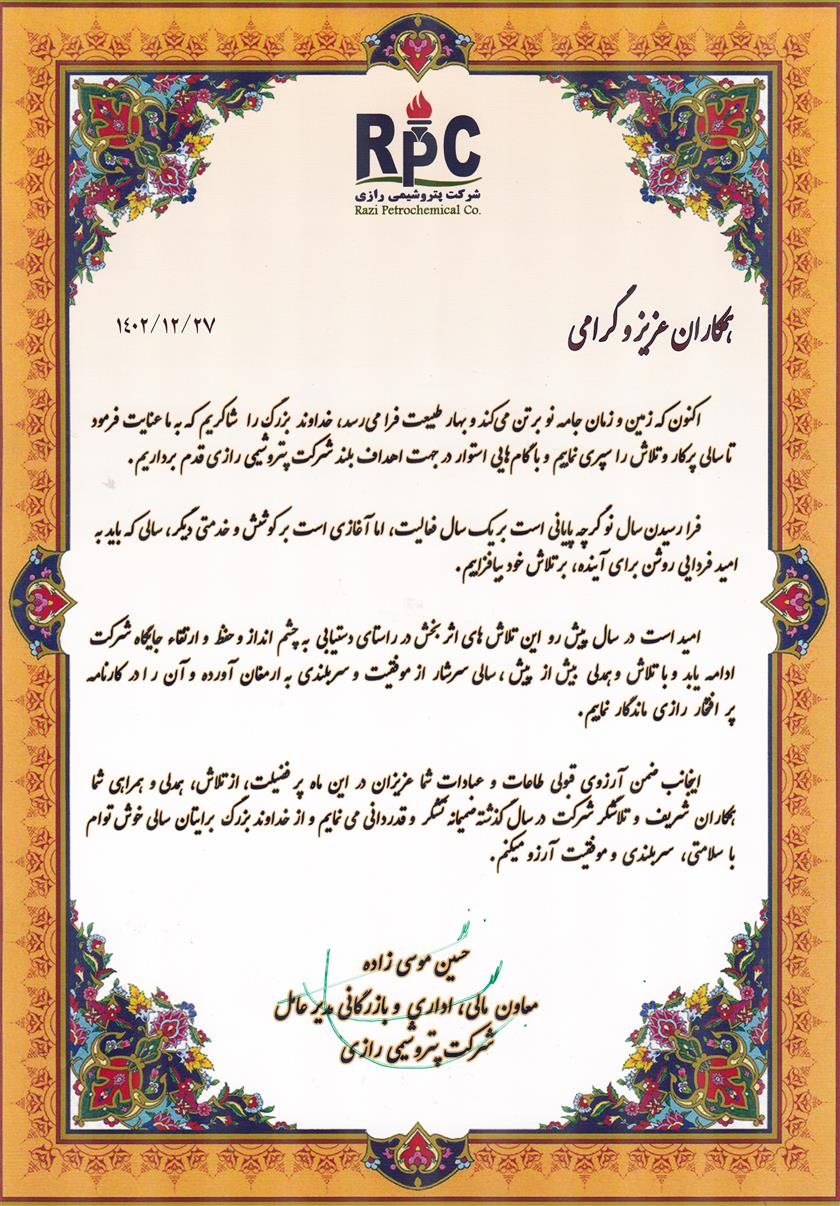 RPC
شرکت پتروشیمی رازی
Razi Petrochemical Co.
همکاران عزیز و گرامی
۱۴۰۲/۱۲/۲۷
اکنون که زمین و زمان جامه نو بر تن می‌کند و بهار طبیعت فرا می‌رسد، خداوند بزرگ را شاکریم که به ما عنایت فرمود
تا سالی پرکار و تلاش را سپری نماییم و با گام‌هایی استوار در جهت اهداف بلند شرکت پتروشیمی رازی قدم برداریم.
فرا رسیدن سال نو گرچه پایانی است بر یک سال فعالیت، اما آغازی است بر کوشش و خدمتی دیگر، سالی که باید به
امید فردایی روشن برای آینده، بر تلاش خود بیافزاییم.
امید است در سال پیش رو این تلاش های اثر بخش در راستای دستیابی به چشم انداز و حفظ و ارتقاء جایگاه شرکت
ادامه یابد و با تلاش و همدلی بیش از پیش، سالی سرشار از موفقیت و سربلندی به ارمغان آورده و آن را در کارنامه
پر افتخار رازی ماندگار نماییم.
اینجانب ضمن آرزوی قبولی طاعات و عبادات شما عزیزان در این ماه پر فضیلت، از تلاش، همدلی و همراهی شما
همکاران شریف و تلاشگر شرکت در سال گذشته صمیمانه تشکر و قدردانی می نمایم و از خداوند بزرگ برایتان سالی خوش توام
با سلامتی، سربلندی و موفقیت آرزو میکنم.
حسین موسی زاده
معاون مالی، اداری و بازرگانی مدیر عامل
شرکت پتروشیمی رازی